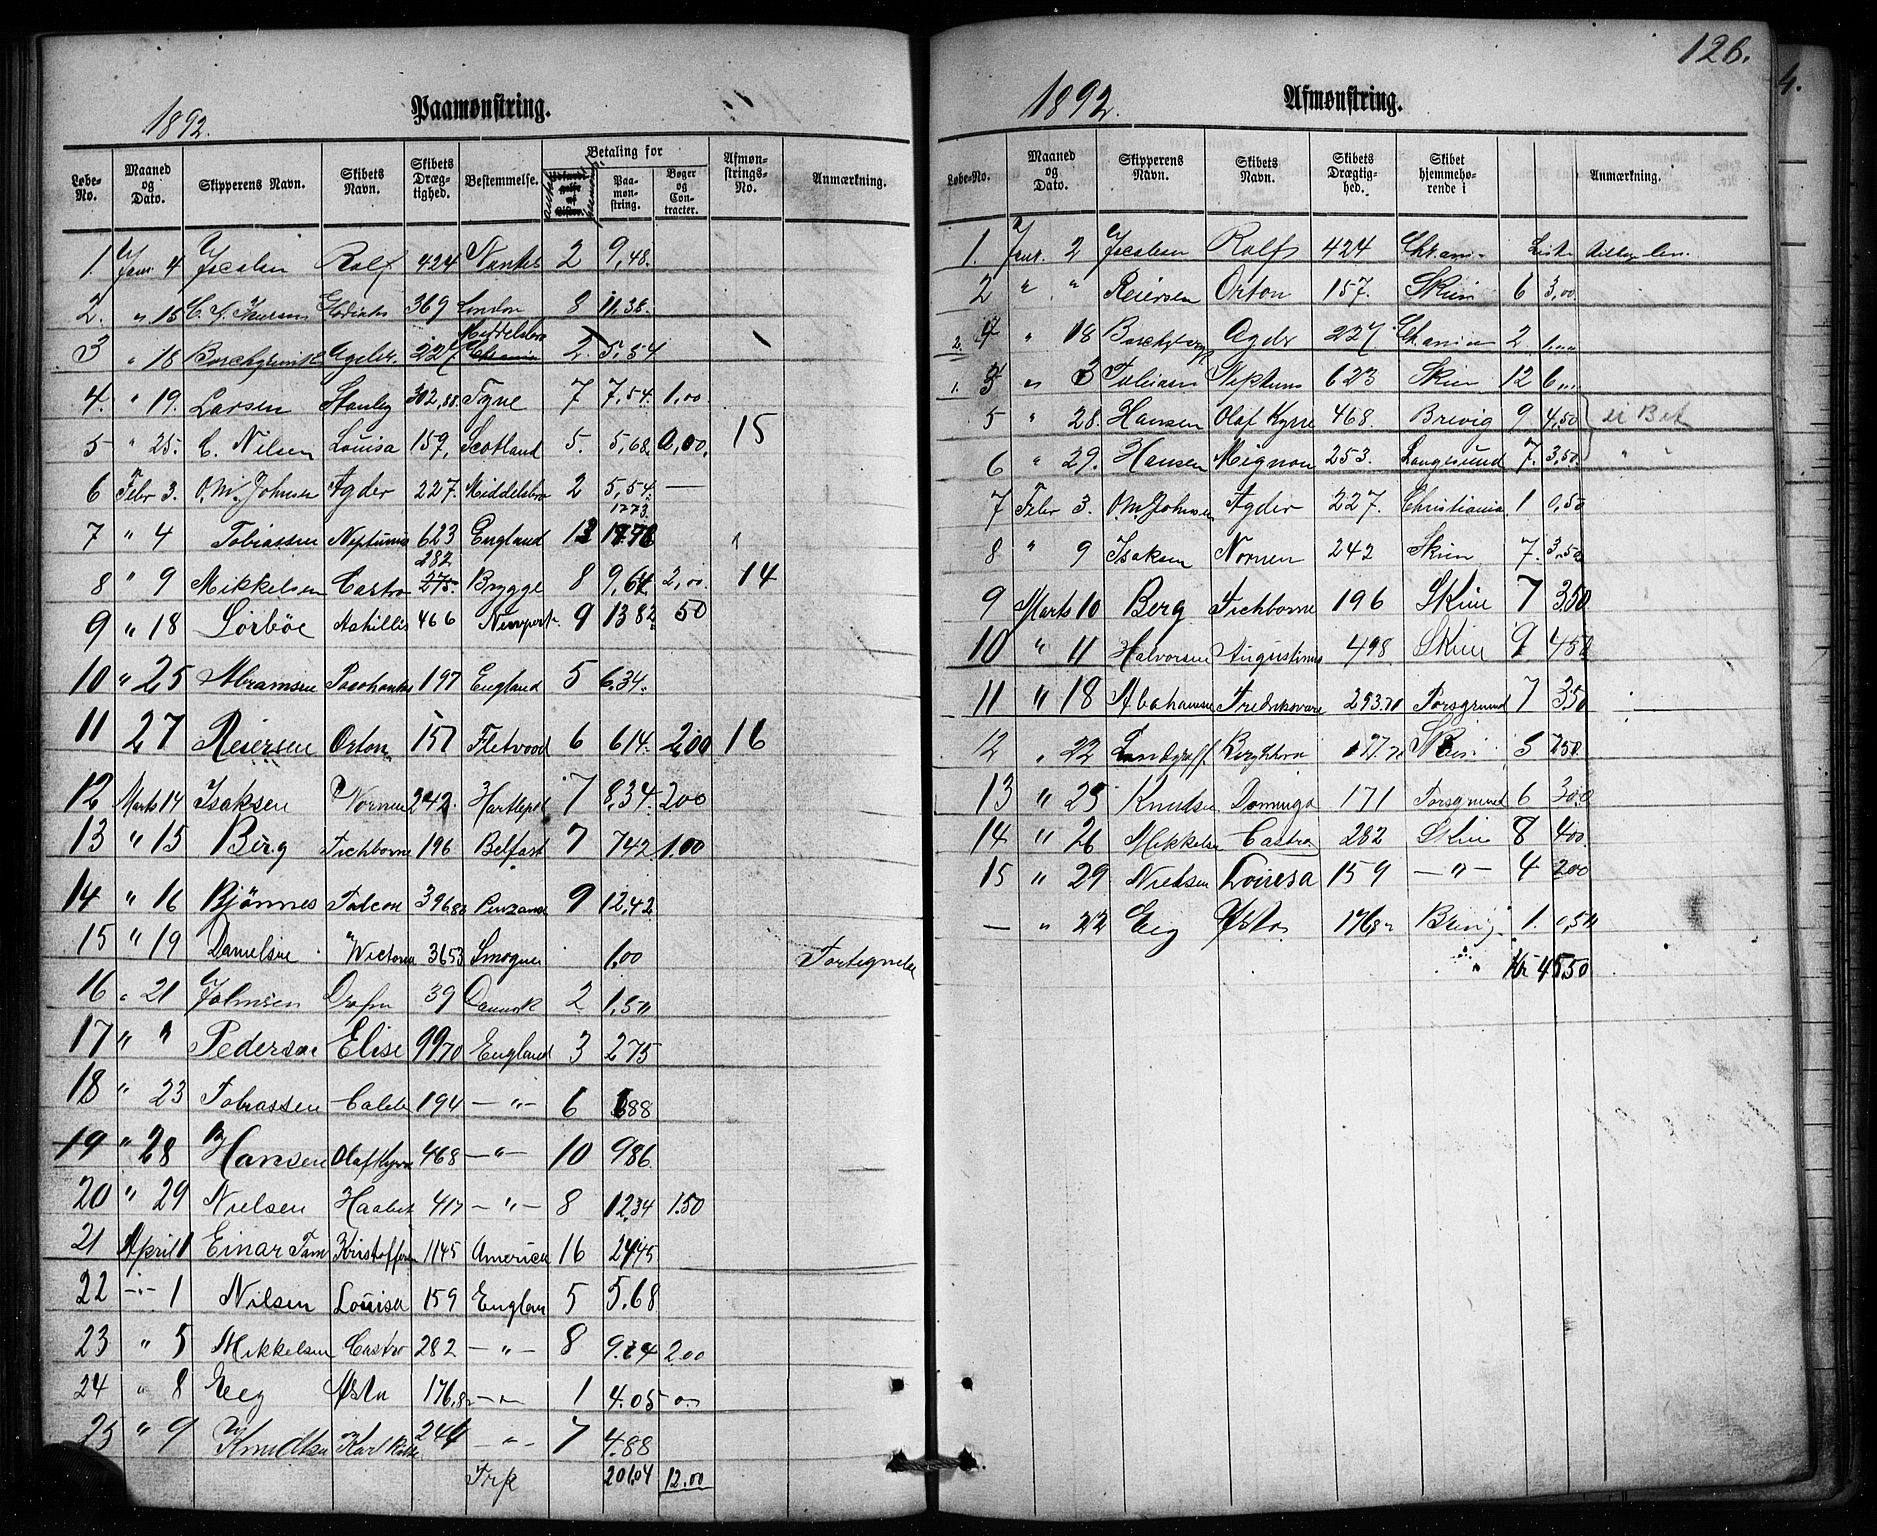 1892.
Paamønstring.
Løbe-No. Maaned og Dato. Skipperens Navn. Skibets Navn. Skibets Drægtighed. Bestemmelse. Betaling for Paamønstring. Bøger og Contracter. Afmønstrings-No. Anmærkning.
1. Janr 4 Jacobsen Rolf 424 Nantes 2 9,48.
2. " 15 369 London 8 11,38.
3 " 18 Borchgrevink Agder. 227 Middelsbro 2 5,54
4. " 19. Larsen Stanley 302,88. Tyne 7 7,54. 1,00
5 " 25. C. Nilsen Louisa 159, Scotland 5. 5,68. 0,00. 15
6 Febr 3. O.M. Johnsen Agder 227. Middelsbro 2 5,54. —
7 " 4 Tobiassen Neptunus 623 England 13 1773.
8 " 9 Mikkelsen Castro 275. 282 Brygge 8 9,64 2,00. 14
9 " 18 Sørbøe Achillis 466 Newport. 9 13 82. 50
10 " 25 Abramsen Pocohontas 197 England 5 6.34.
11 27 Reiersen Orton 157 Fletvood 6 614. 2,00 16
12 Marts 14 Isaksen Nornen 242. Hartlepol 7 8,34. 200
13 " 15 Berg Tichborne 196 Belfast 7 742 1.00
14 " 16 Bjønnes Falcon 396,83 Penzance 9 12,42
15 " 19 Danielsen Victoria 3653 Smøgen 1.00 Fortegnelse
16 " 21 Johnsen Drafn 39 Danmk 2 1,50
17 " " Pedersen Elise 99.70 England 3 275
18 " 23 Tobiassen Caleb 194 — " — 6 688
19 " 28 Hansen Olaf Kyrre 468 — " — 10 986
20 " 29 Nielsen Haabet 417 — " — 8 12.34 1.50
21 April 1 Einar Tam Kristoffersen 1145 America 16 2445
22 — " — 1 Nilsen Louisa 159 Englan 5 5.68
23 " 5 Mikkelsen Castro 282 — " — 8 9.64 2.00
24 " 8 Eeg Østa 176,8 — " — 1 4.05
25 " 9 Knudtsen Karl 244 — " — 7 4.88
Trp 201.04 12.00
126.
1892.
Afmønstring.
Løbe-No. Maaned og Dato. Skipperens Navn. Skibets Navn. Skibets Drægtighed. Skibet hjemmehørende i Anmærkning.
1. Janr. 2 Jacobsen Rolf 424 Chrania
2 " " Reiersen Orton 157. Skien 6 3,00
2. 4 " 18 Borchgrevink Agder 227. Chrania 2. 1,00
1. 3 " 3 Tobiasen Neptunus 623 Skien 12 6,,,
5 " 28. Hansen Olaf Kyrre 468. Brevig 9 4,50 er Bet
6 " 29. Hansen Mignon 253. Langesund 7. 3,50. " "
7 Febr 3. O.M. Johnsen Agder 227. Christiania. 1 0,50
8 " 9 Isaksen Nornen 242 Skien 7. 3,50
9 Marts 10 Berg Tichborne 196 Skien 7 350
10 " 11 Halvorsen Augustinus 498. Skien 9 450
11 " 18 Abrahamsen Fredriksværn 253.70 Porsgrund 7 350
12 " 22 Landgraff Bergliot Skien 5 250.
13 " 25 Knudsen Dominga 171 Porsgrund 6 300
14 " 26 Mikkelsen Castro 282 Skien 8 400.
15 " 29 Nielsen Louisa 159 — " — 4 200
— " 22 Eig Østa 176,8 Brevig 1. 0,50
Kr 45,50